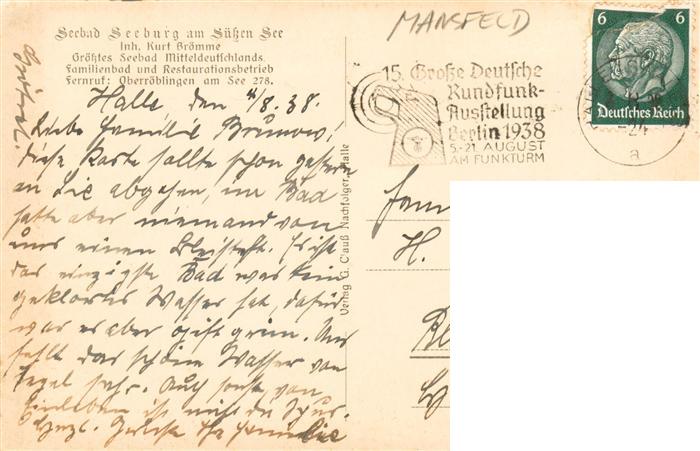 Seebad Seeburg am Süßen See
Inh. Kurt Brömme
Größtes Seebad Mitteldeutschlands
Familienbad und Restaurationsbetrieb
Fernruf: Oberröblingen am See 278.
MANSFELD
15. Große Deutsche
Rundfunk-
Ausstellung
Berlin 1938
5.-21. AUGUST
AM FUNKTURM
6 6
Deutsches Reich
a
Halle den 4/8.38.
Liebe Familie Brunow!
diese Karte sollte schon gestern
an Sie abgehen, im Bad
hatte aber niemand von
uns einen Bleistift. Es ist
das einzigste Bad was kein
geklortes Wasser hat, dafür
war es aber giftgrün. Uns
fehlt das schöne Wasser von
Tegel sehr. Auch sonst von
ist nicht die Spur.
Herzl. Grüße Ihre Familie
Verlag G. Clauß Nachfolger, Halle
Fam
H.